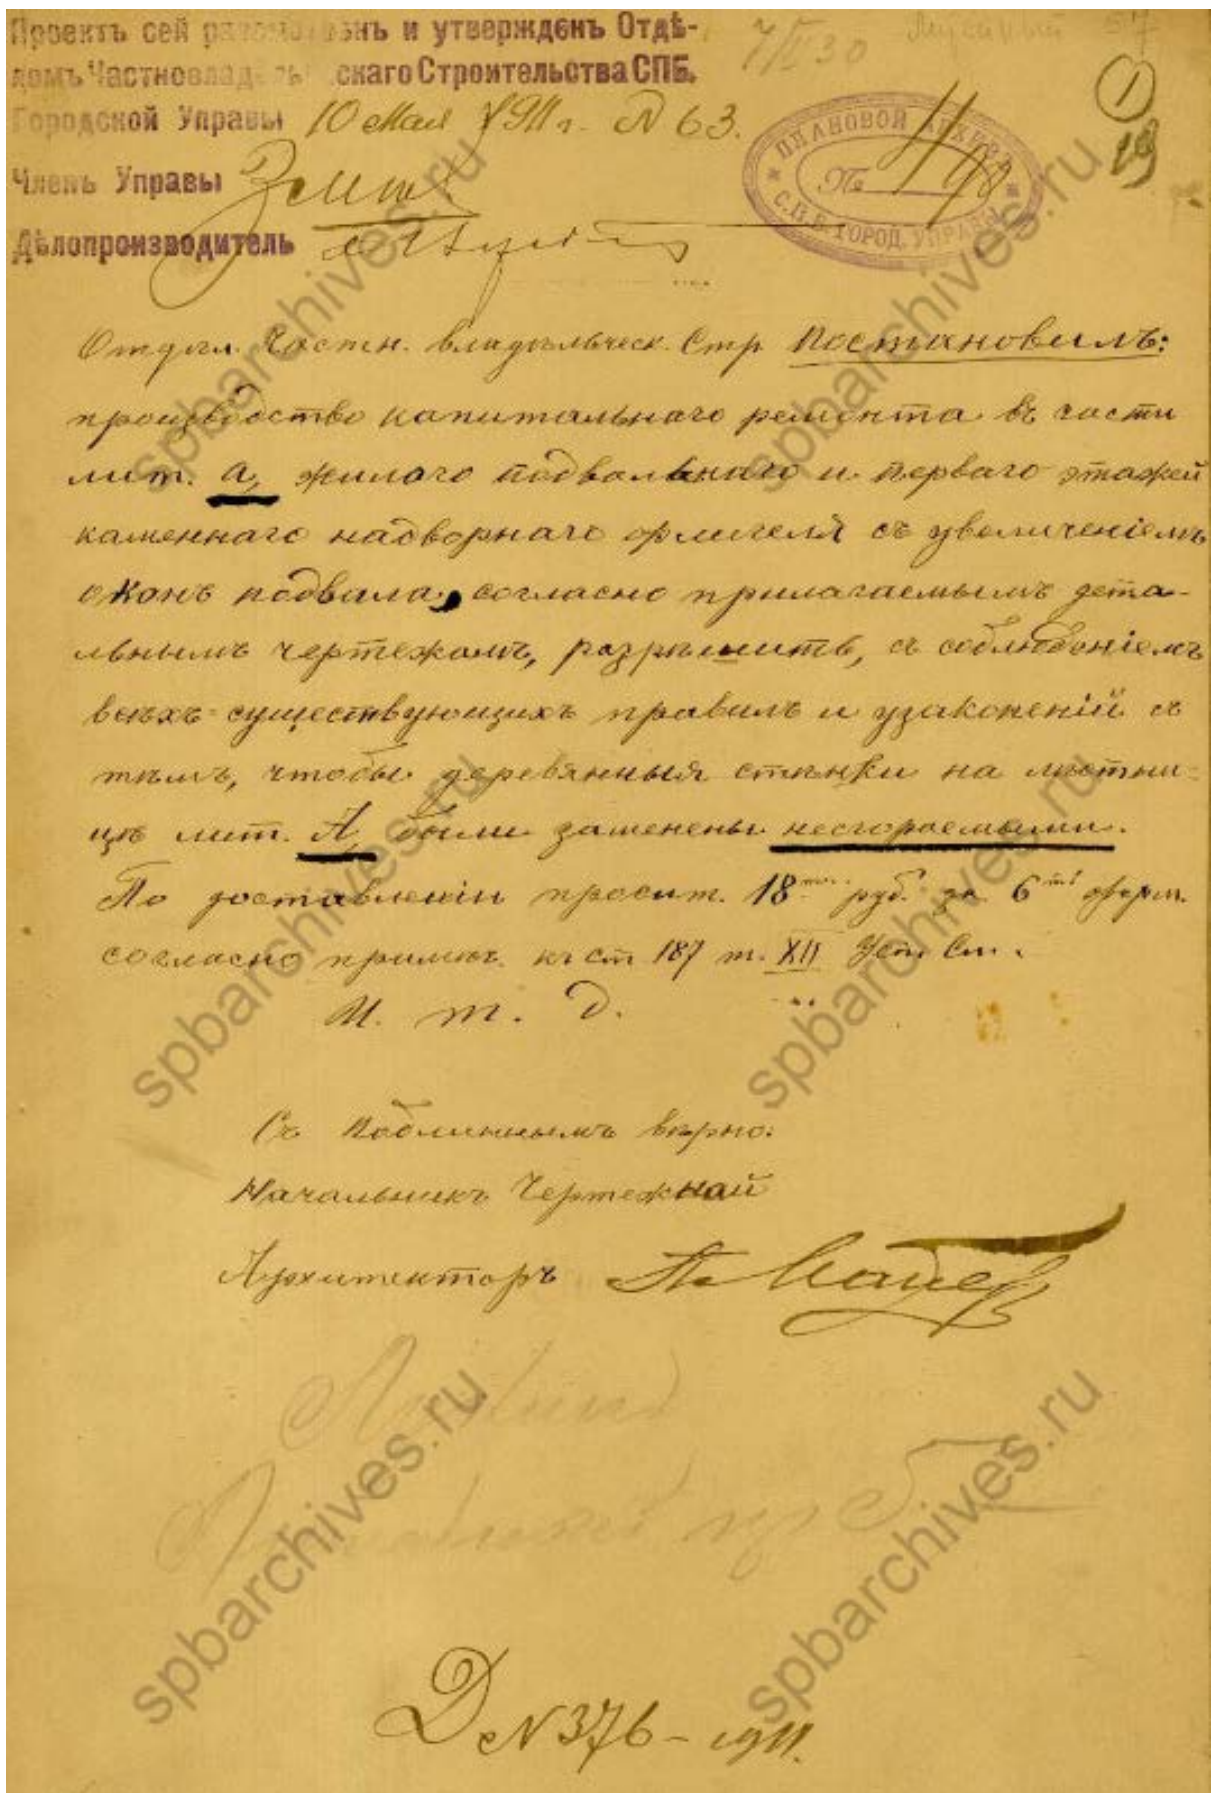 Проектъ сей разсмотрѣнъ и утвержденъ Отдѣ-
ломъ Частновладѣльческаго Строительства СПБ.
Городской Управы 10 Мая 1911 г. № 63.
Членъ Управы
Дѣлопроизводитель
7/V 30
1
19
ПЛАНОВОЙ АРХИВЪ
№ 11/90
С.П.Б. ГОРОД. УПРАВЫ
Отдѣл. Частн. владѣльческ. Стр Постановилъ:
производство капитальнаго ремонта въ части
лит. а, жилого подвальнаго и перваго этажей
каменнаго надворнаго флигеля съ увеличеніемъ
оконъ подвала, согласно прилагаемымъ дета-
льнымъ чертежамъ, разрѣшить, съ соблюденіемъ
всѣхъ существующихъ правилъ и узаконеній съ
тѣмъ, чтобы деревянныя стѣнки на лѣстни-
цѣ лит. А, были заменены несгораемыми.
По доставленіи просит. 18 руб. за 6 форм.
согласно примѣч. къ ст 187 т. XII Уст.
И. т. д.
Съ подлиннымъ вѣрно:
Начальникъ Чертежной
Архитекторъ
Д № 376 - 1911.
spbarchives.ru
spbarchives.ru
spbarchives.ru
spbarchives.ru
spbarchives.ru
spbarchives.ru